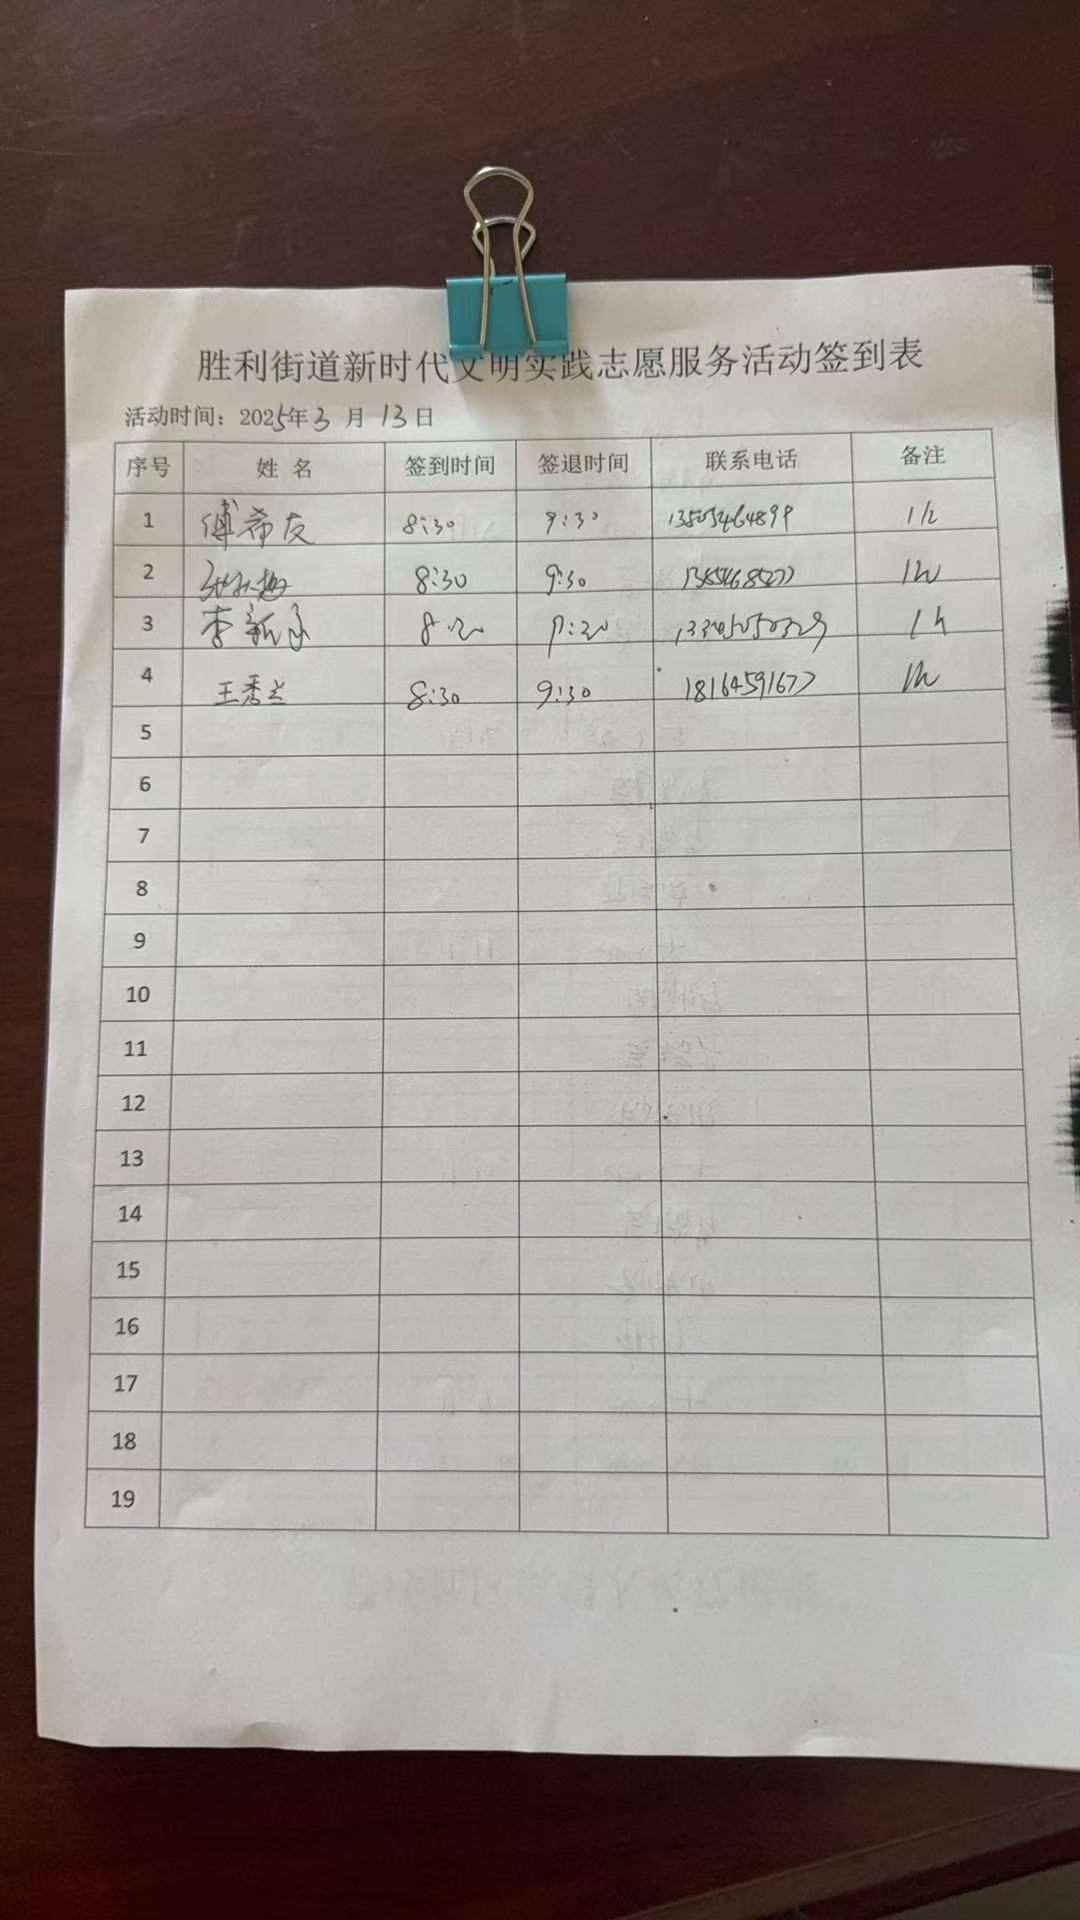 胜利街道新时代文明实践志愿服务活动签到表
活动时间：2025年3月13日
序号 姓名 签到时间 签退时间 联系电话 备注
1 傅希友 8:30 9:30 13505464899 1h
2 8:30 9:30 1h
3 李新 8:30 9:30 1h
4 王秀兰 8:30 9:30 18164591677 1h
5
6
7
8
9
10
11
12
13
14
15
16
17
18
19